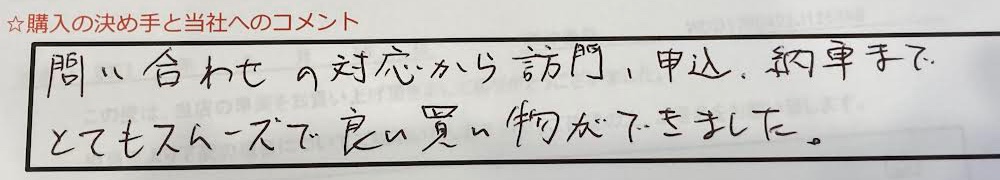 ☆購入の決め手と当社へのコメント
問い合わせの対応から訪門、申込、納車まで
とてもスムーズで良い買い物ができました。